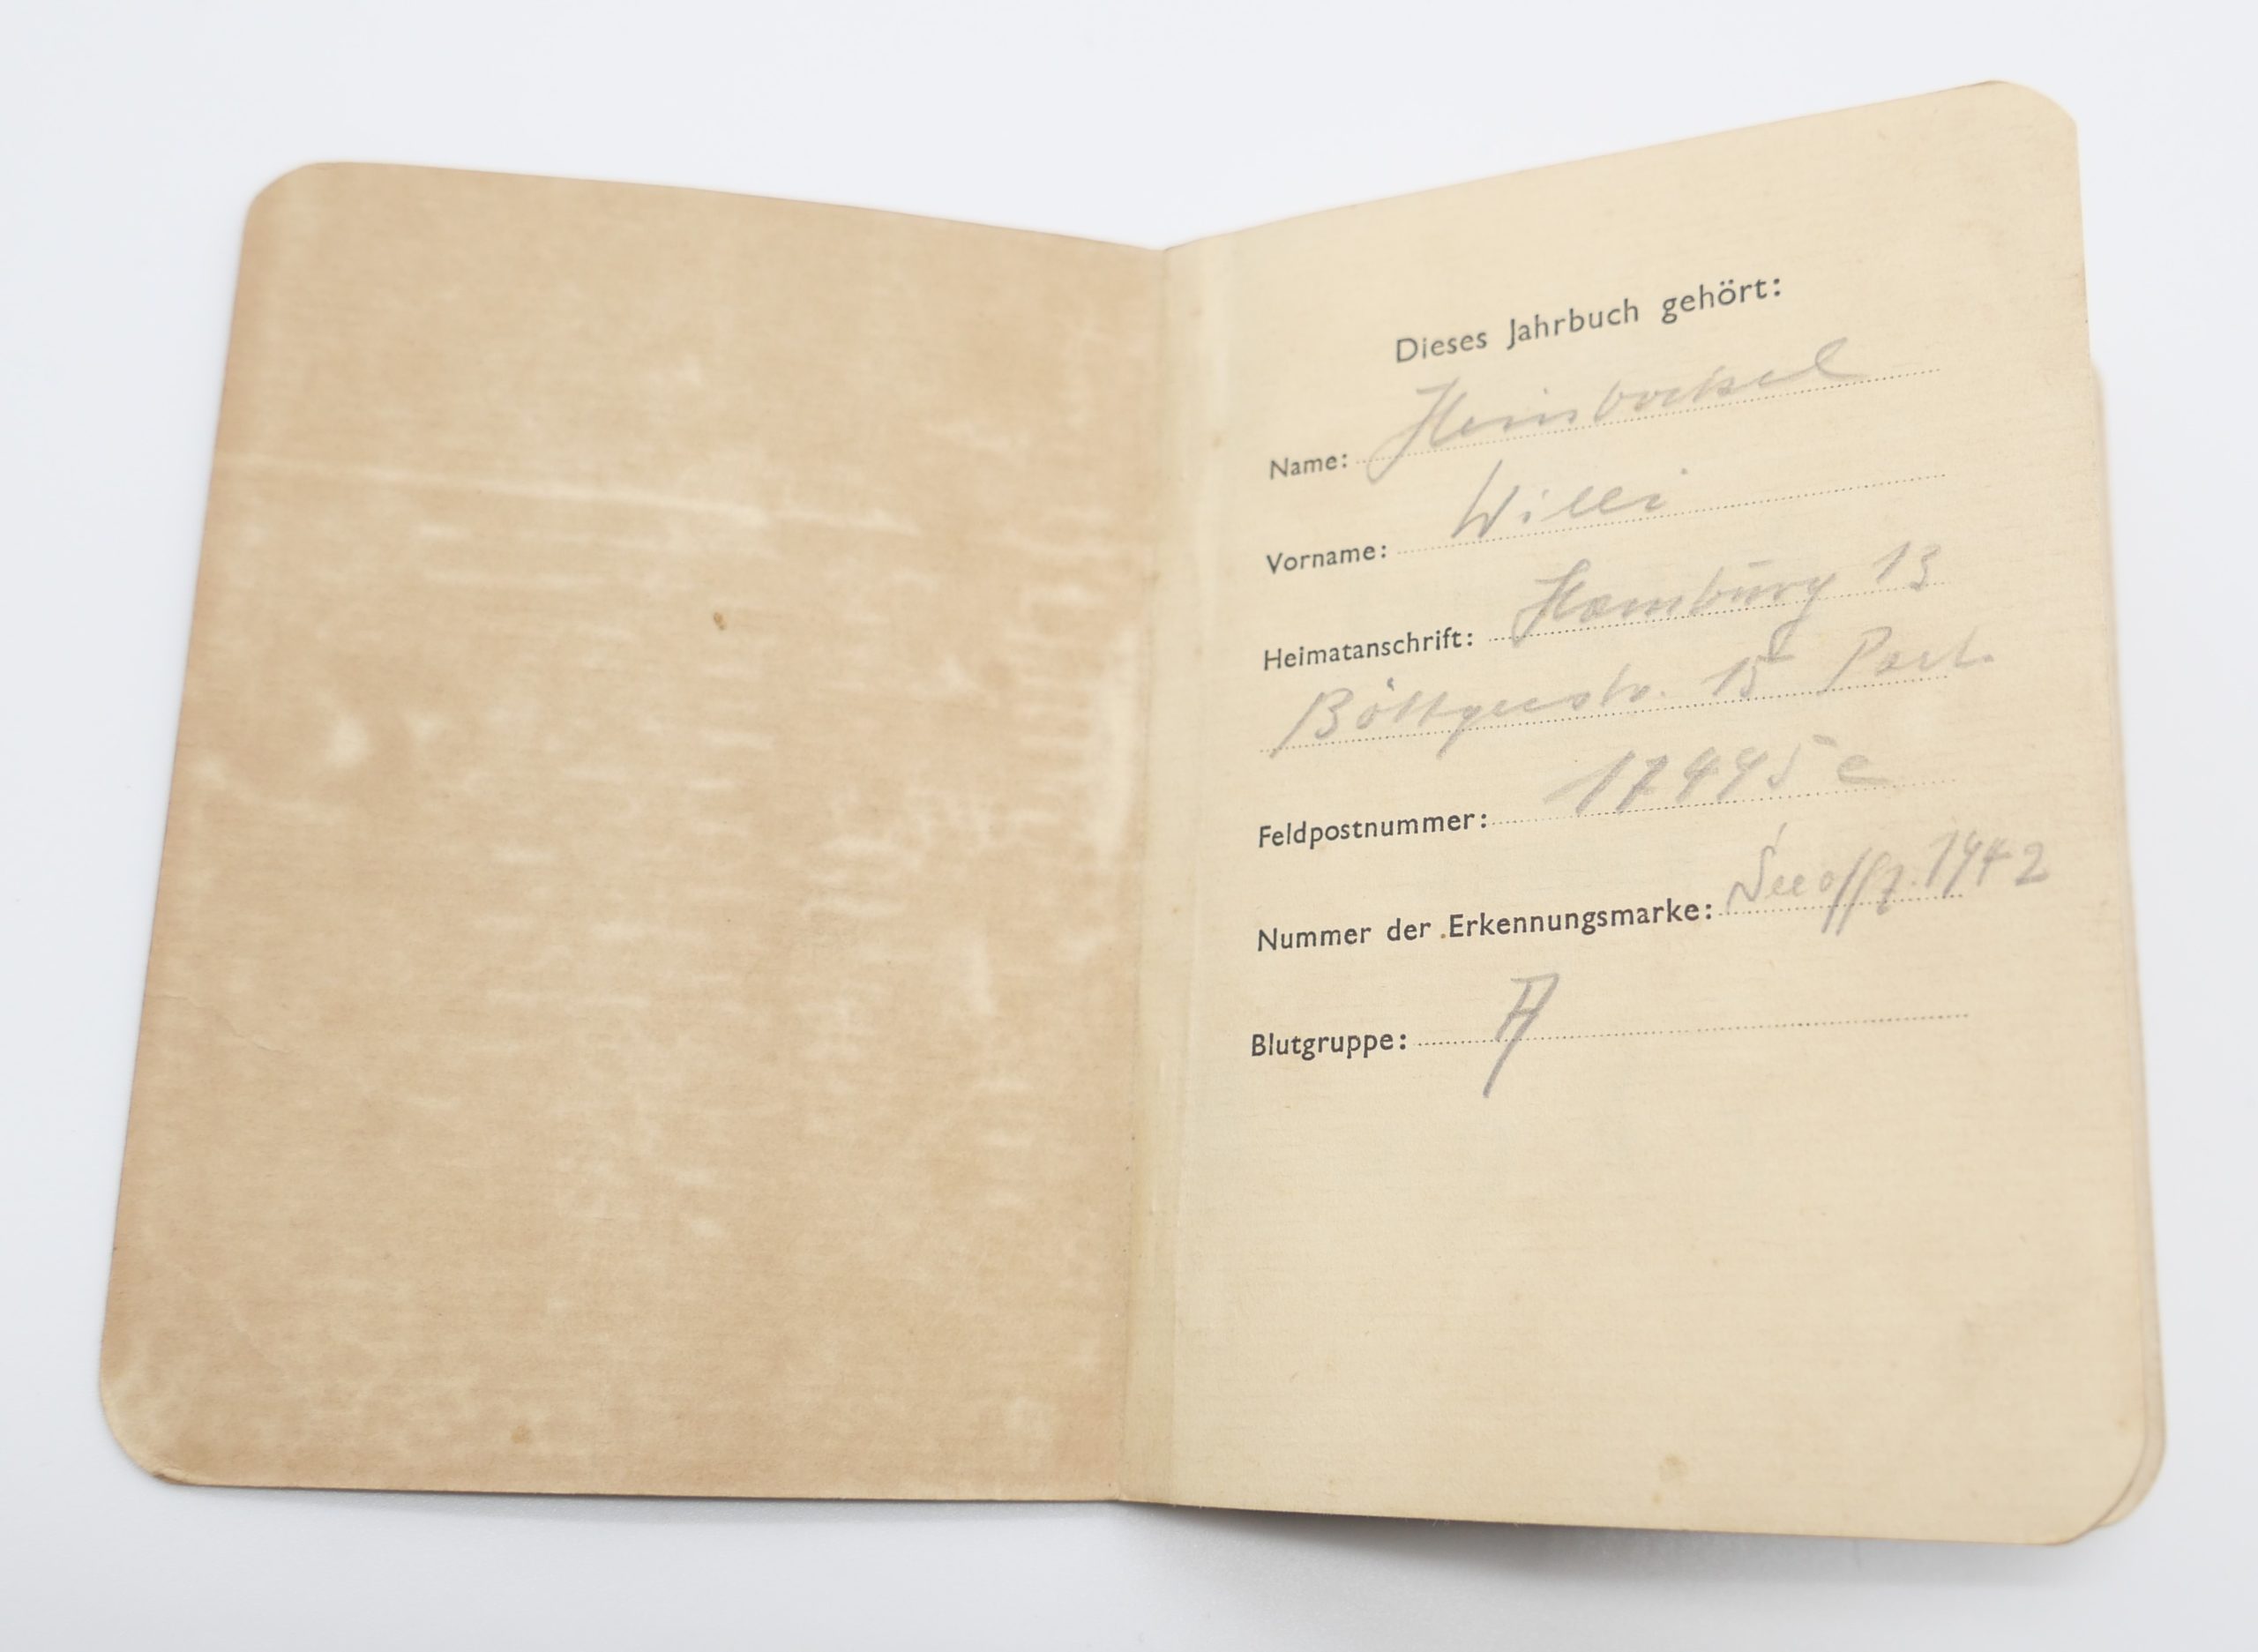 Dieses Jahrbuch gehört:
Name: Heinsbockel
Vorname: Willi
Heimatanschrift: Hamburg 13
Böttgerstr. 15 Part.
Feldpostnummer: 17495 c
Nummer der Erkennungsmarke: Seeoffz. 1942
Blutgruppe: A